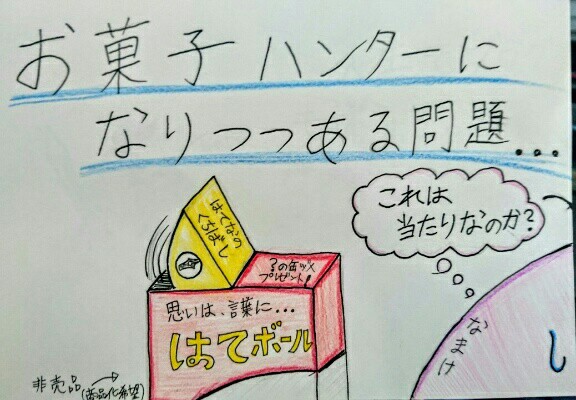 お菓子ハンターに
なりつつある問題...
これは
当たりなのか?
はてなの
くちばし
るの缶づメ
プレゼント!
思いは、言葉に...
はてボール
なまけ
し
非売品→
(商品化希望)